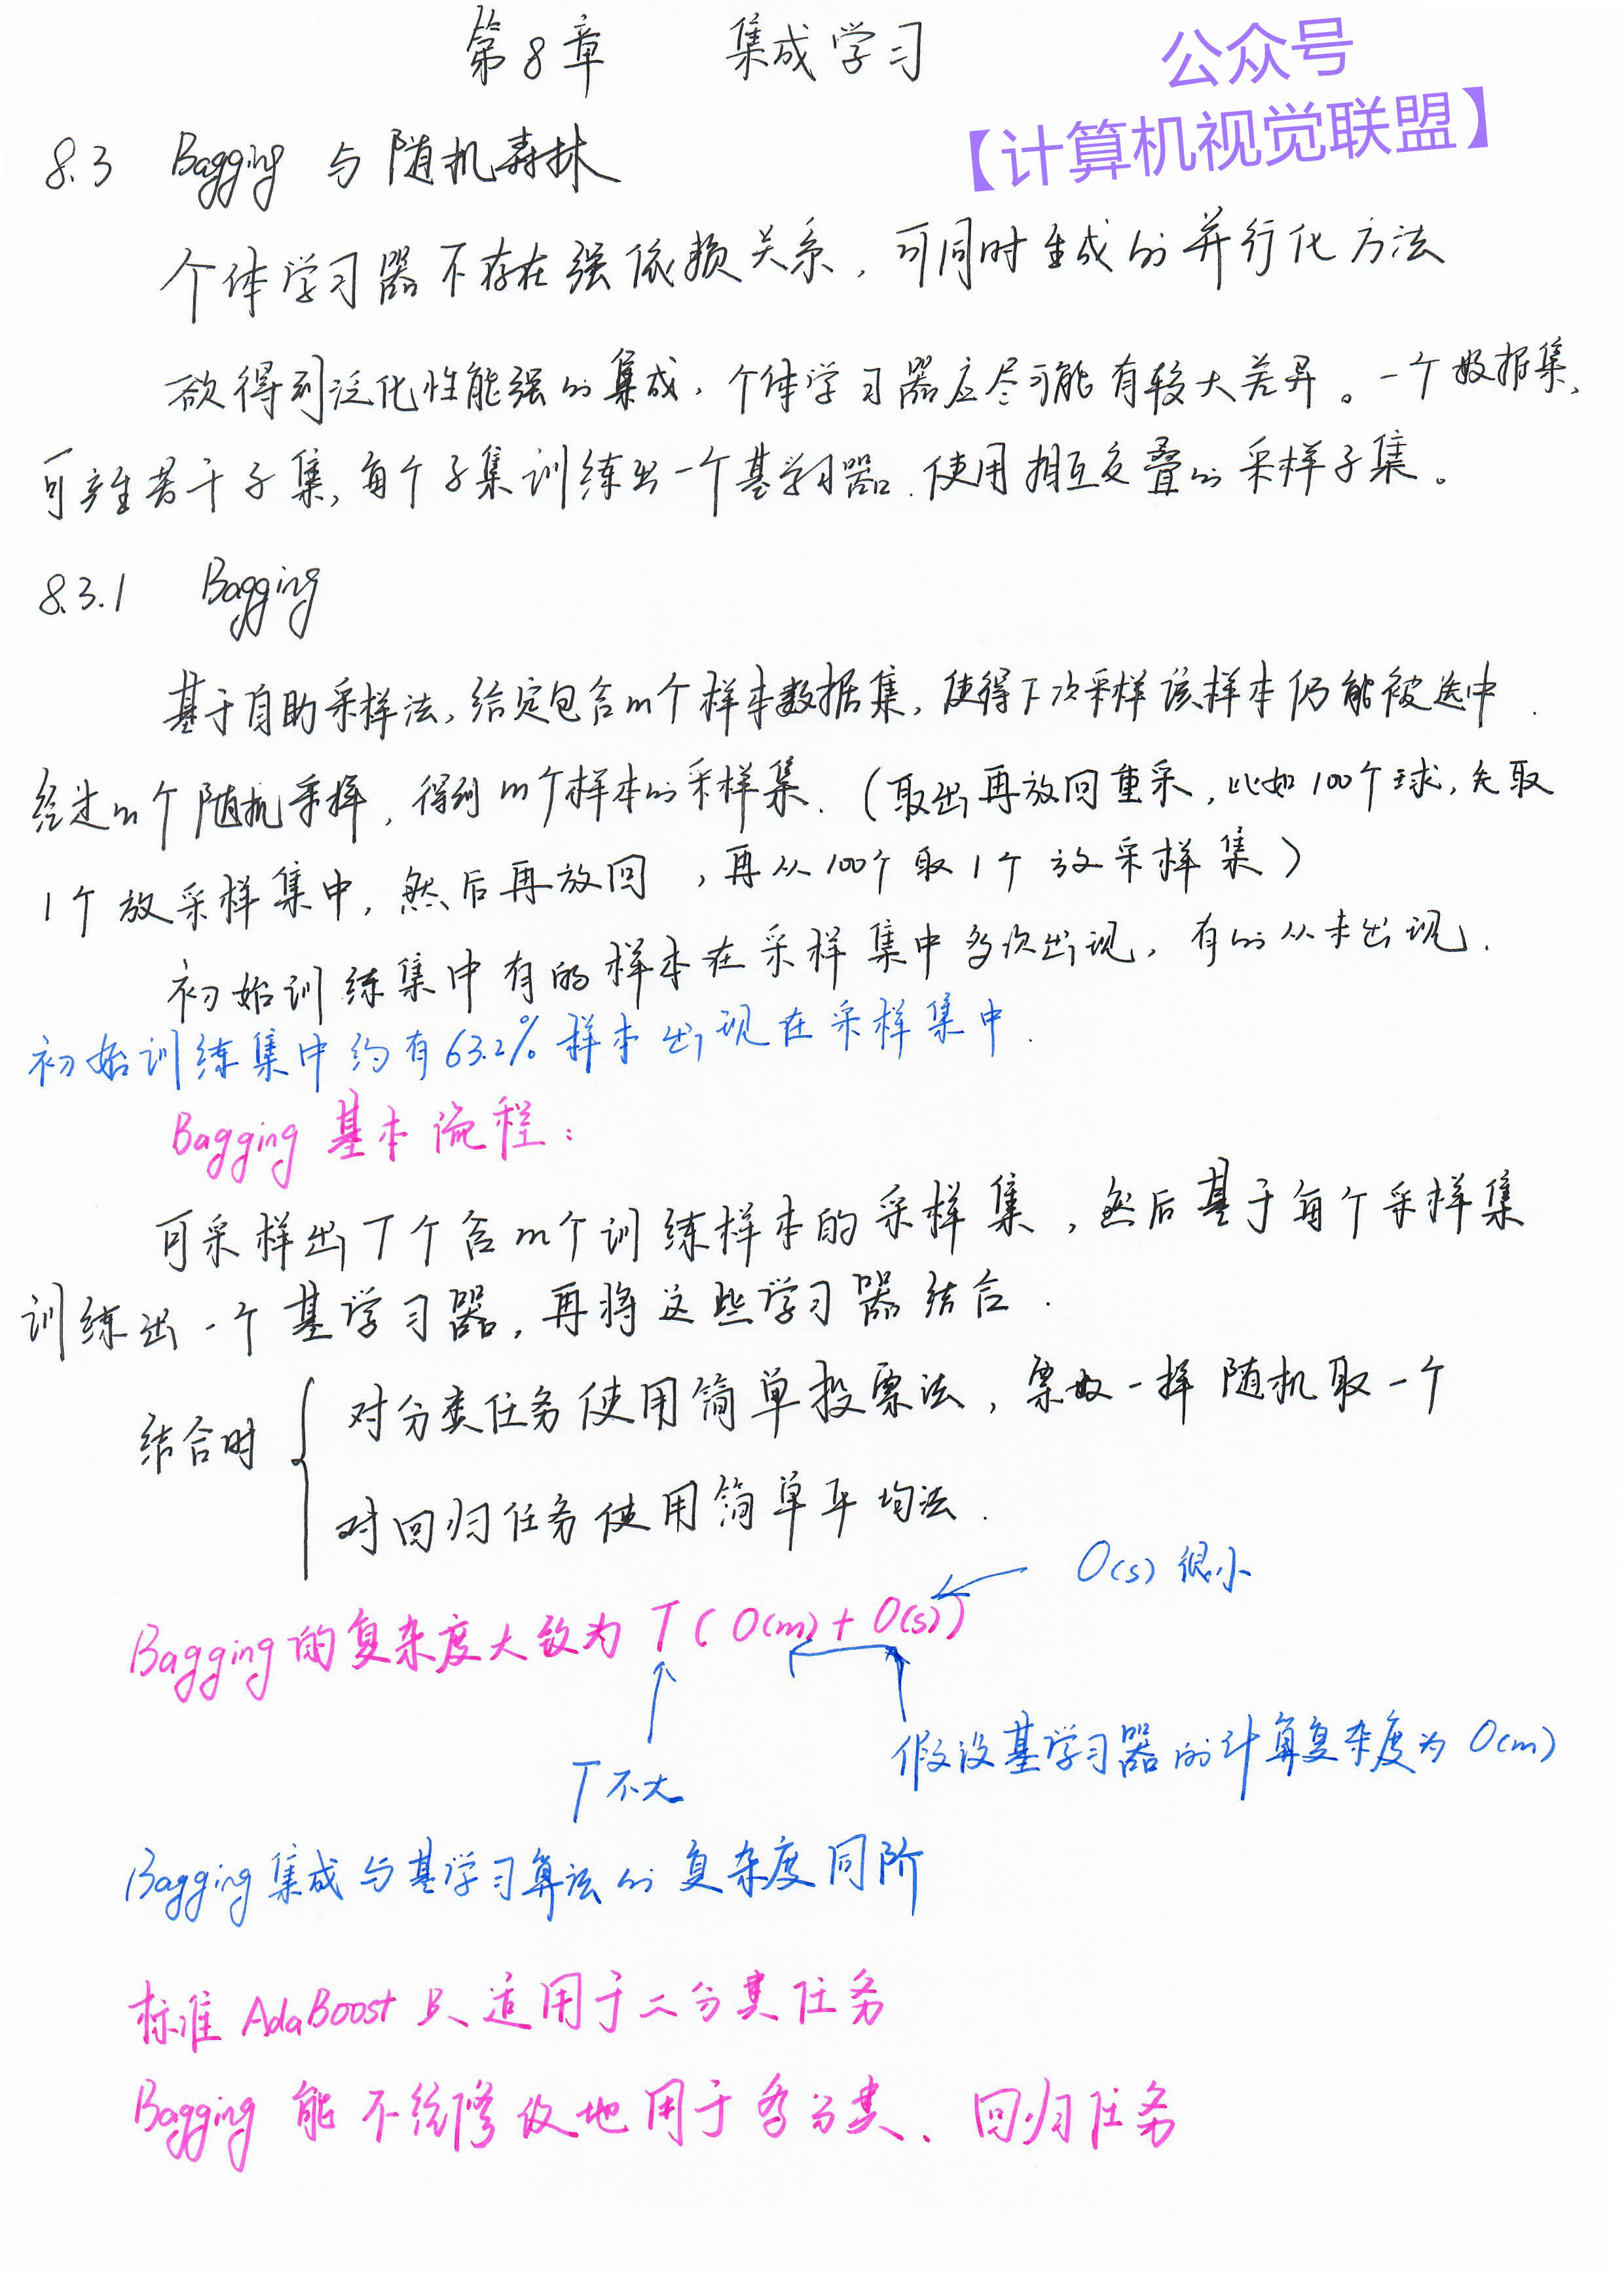 第8章 集成学习
公众号
【计算机视觉联盟】
8.3 Bagging 与随机森林
个体学习器不存在强依赖关系，可同时生成的并行化方法
欲得到泛化性能强的集成，个体学习器应尽可能有较大差异。一个数据集，
可产生若干子集，每个子集训练出一个基学习器.使用相互交叠的采样子集。
8.3.1 Bagging
基于自助采样法，给定包含m个样本数据集，使得下次采样该样本仍能被选中.
经过m个随机采样，得到m个样本的采样集.（取出再放回重采，比如100个球，先取
1个放采样集中，然后再放回，再从100个取1个放采样集）
初始训练集中有的样本在采样集中多次出现，有的从未出现.
初始训练集中约有63.2%样本出现在采样集中.
Bagging 基本流程：
可采样出T个含m个训练样本的采样集，然后基于每个采样集
训练出一个基学习器，再将这些学习器结合.
结合时
对分类任务使用简单投票法，票数一样随机取一个
对回归任务使用简单平均法.
O(s) 很小
Bagging的复杂度大致为 T(O(m)+O(s))
假设基学习器的计算复杂度为 O(m)
T不大
Bagging集成与基学习算法的复杂度同阶
标准AdaBoost只适用于二分类任务
Bagging 能不经修改地用于多分类、回归任务